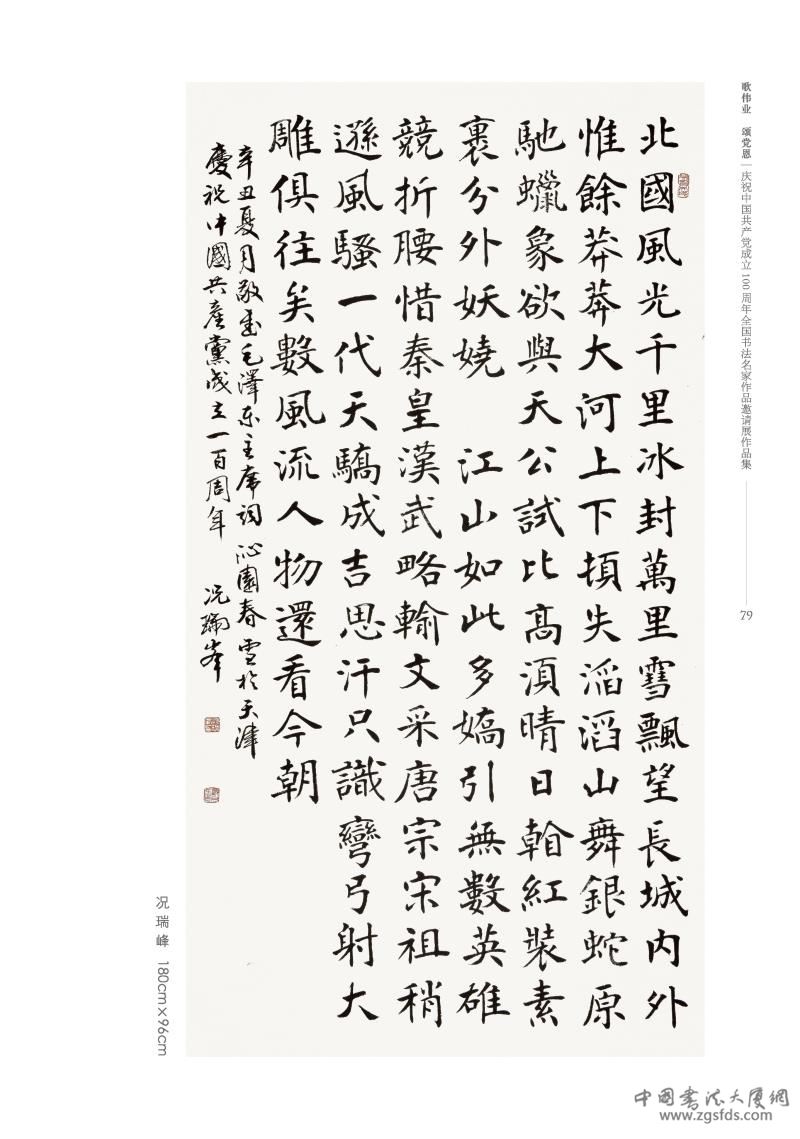 歌伟业 颂党恩 | 庆祝中国共产党成立100周年全国书法名家作品邀请展作品集
79
北國風光千里冰封萬里雪飄望長城内外
惟餘莽莽大河上下頓失滔滔山舞銀蛇原
馳蠟象欲與天公試比高湏晴日看紅裝素
裹分外妖嬈 江山如此多嬌引無數英雄
競折腰惜秦皇漢武略輸文采唐宗宋祖稍
遜風騷一代天驕成吉思汗只識彎弓射大
雕俱往矣數風流人物還看今朝
辛丑夏月敬書毛澤东主席詞沁園春雪於天津
慶祝中國共産黨成立一百周年 况瑞峯
况瑞峰 180cm×96cm
中国书法大厦網
www.zgsfds.com